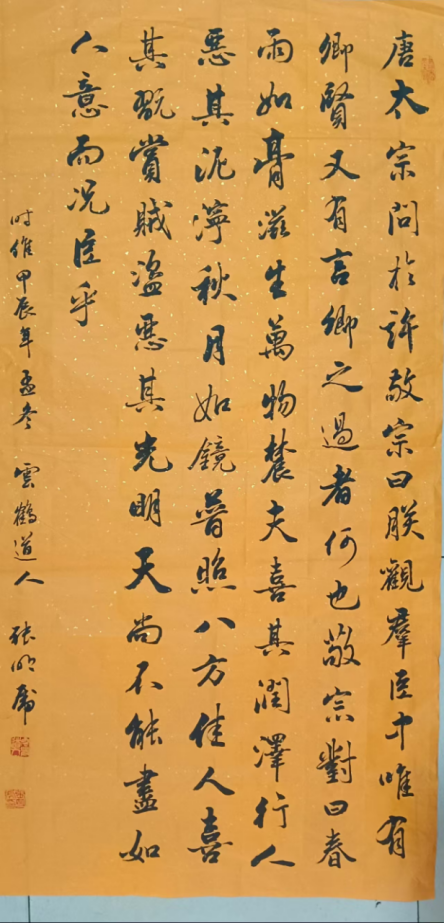 唐太宗問於許敬宗曰朕觀羣臣中唯有
卿賢又有言卿之過者何也敬宗對曰春
雨如膏滋生萬物農夫喜其潤澤行人
惡其泥濘秋月如鏡普照八方佳人喜
其翫賞賊盜惡其光明天尚不能盡如
人意而况臣乎
时维甲辰年孟冬 雲鶴道人 張